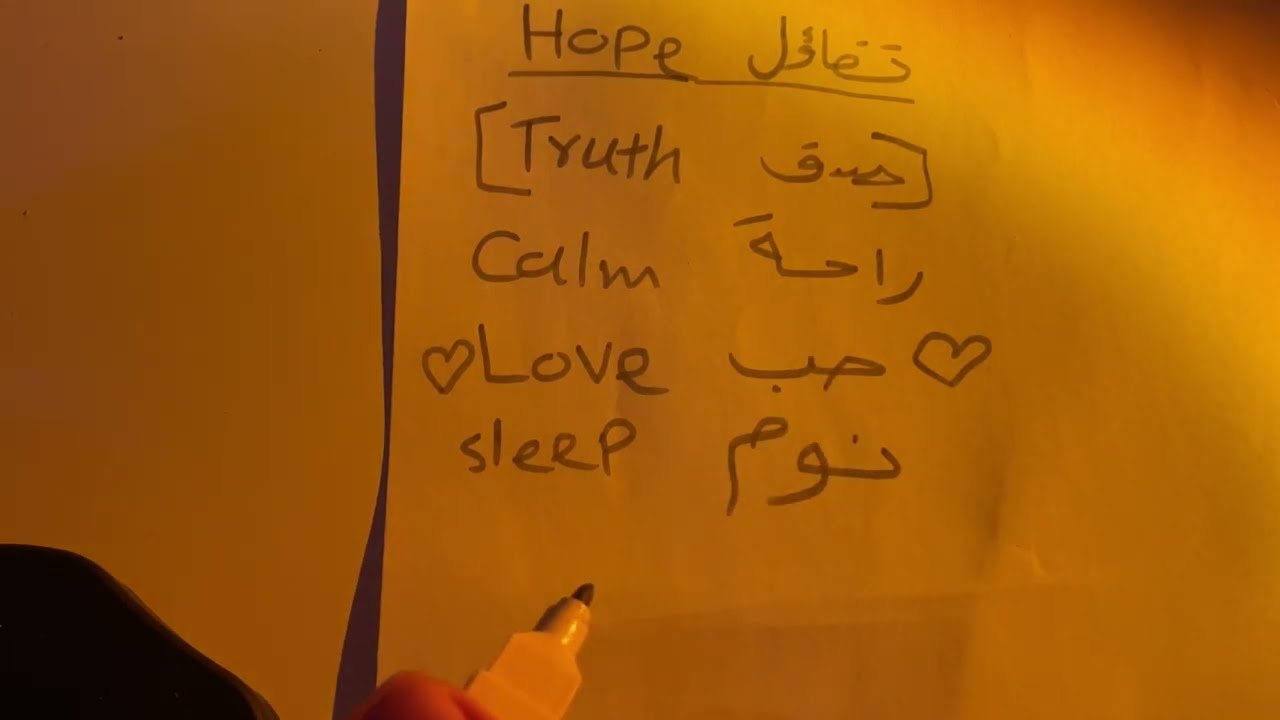 Hope تفاؤل
[Truth صدق]
Calm راحة
♡Love حب♡
sleep نوم